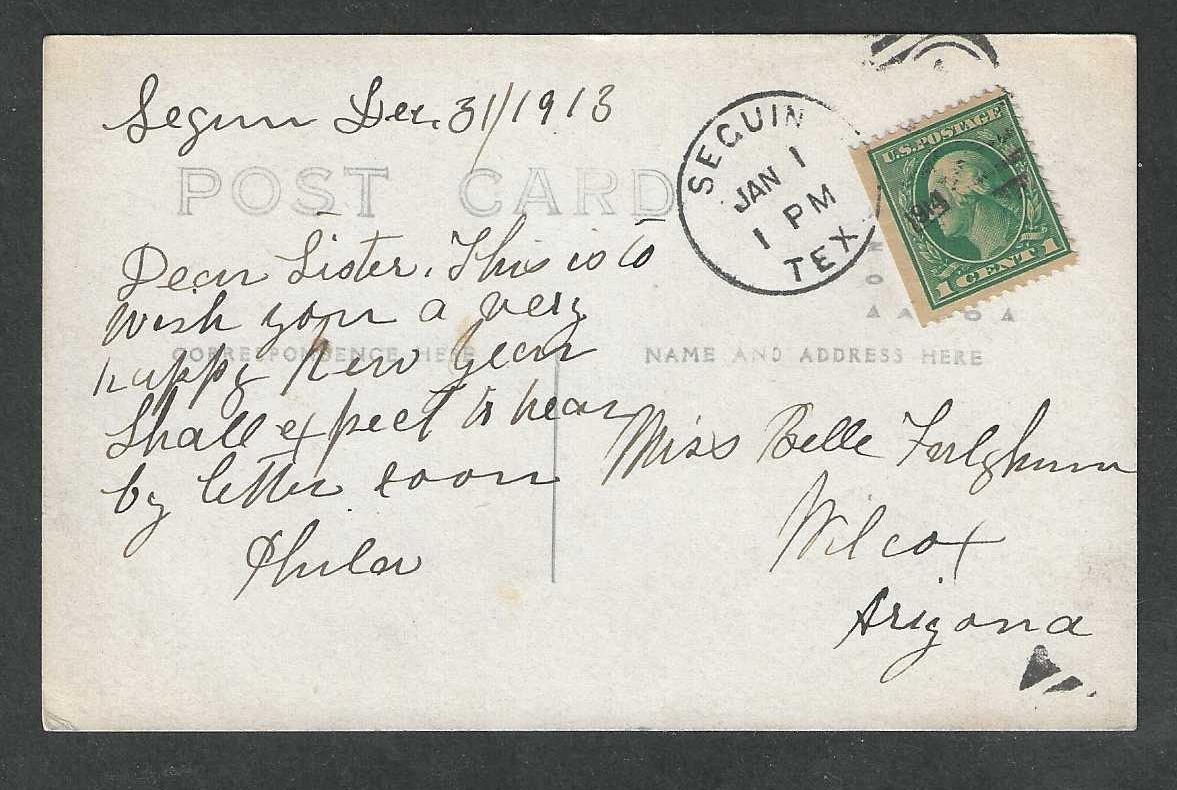 Seguin Dec. 31/1913
POST CARD
Dear Sister. This is to
wish you a very
happy New Year
Shall expect to hear
by letter soon
Phila
CORRESPONDENCE HERE
SEGUIN
JAN 1
1 PM
TEX
1914
U.S. POSTAGE
1 CENT 1
NAME AND ADDRESS HERE
Miss Belle
Wilcox
Arizona